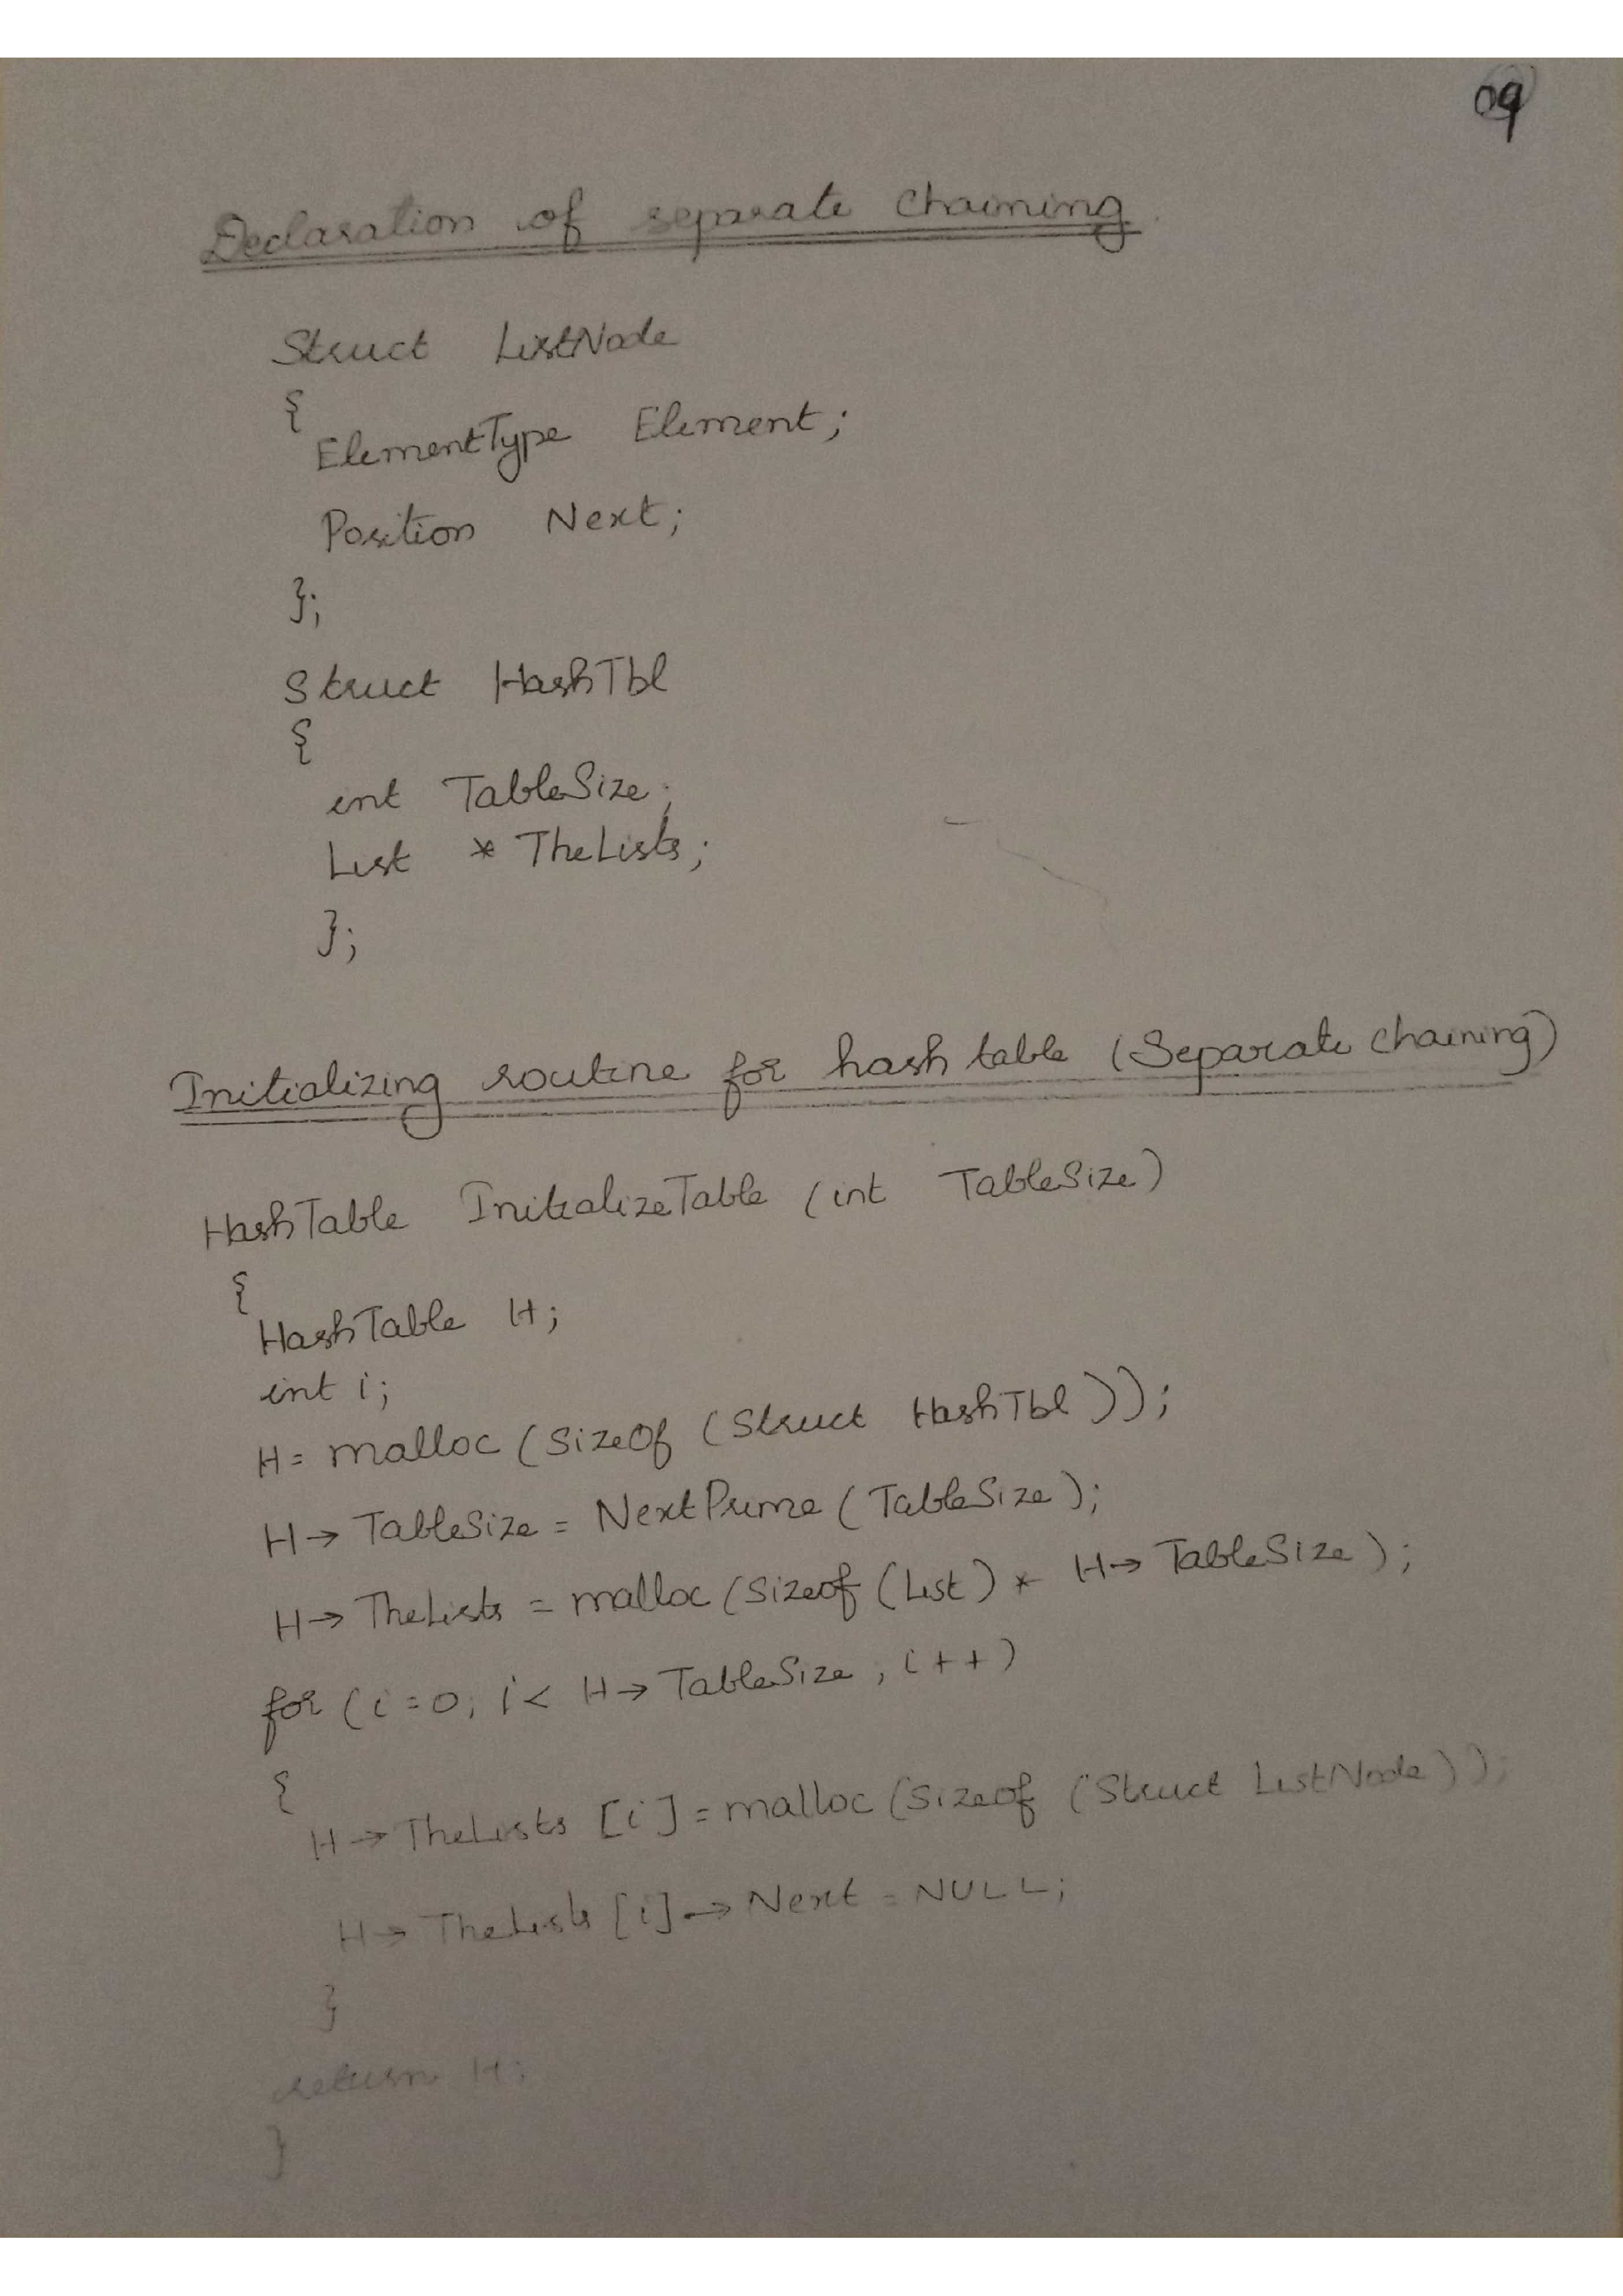 09
Declaration of separate chaining
Struct ListNode
{
ElementType Element;
Position Next;
};
Struct HashTbl
{
int TableSize;
List * TheLists;
};
Initializing routine for hash table (Separate chaining)
HashTable InitializeTable (int TableSize)
{
HashTable H;
int i;
H = malloc (sizeof (Struct HashTbl));
H → TableSize = NextPrime (TableSize);
H → TheLists = malloc (Sizeof (List) * H → TableSize);
for (i = 0; i < H → TableSize; i++)
{
H → TheLists [i] = malloc (Sizeof (Struct ListNode));
H → TheLists [i] → Next = NULL;
}
return H;
}